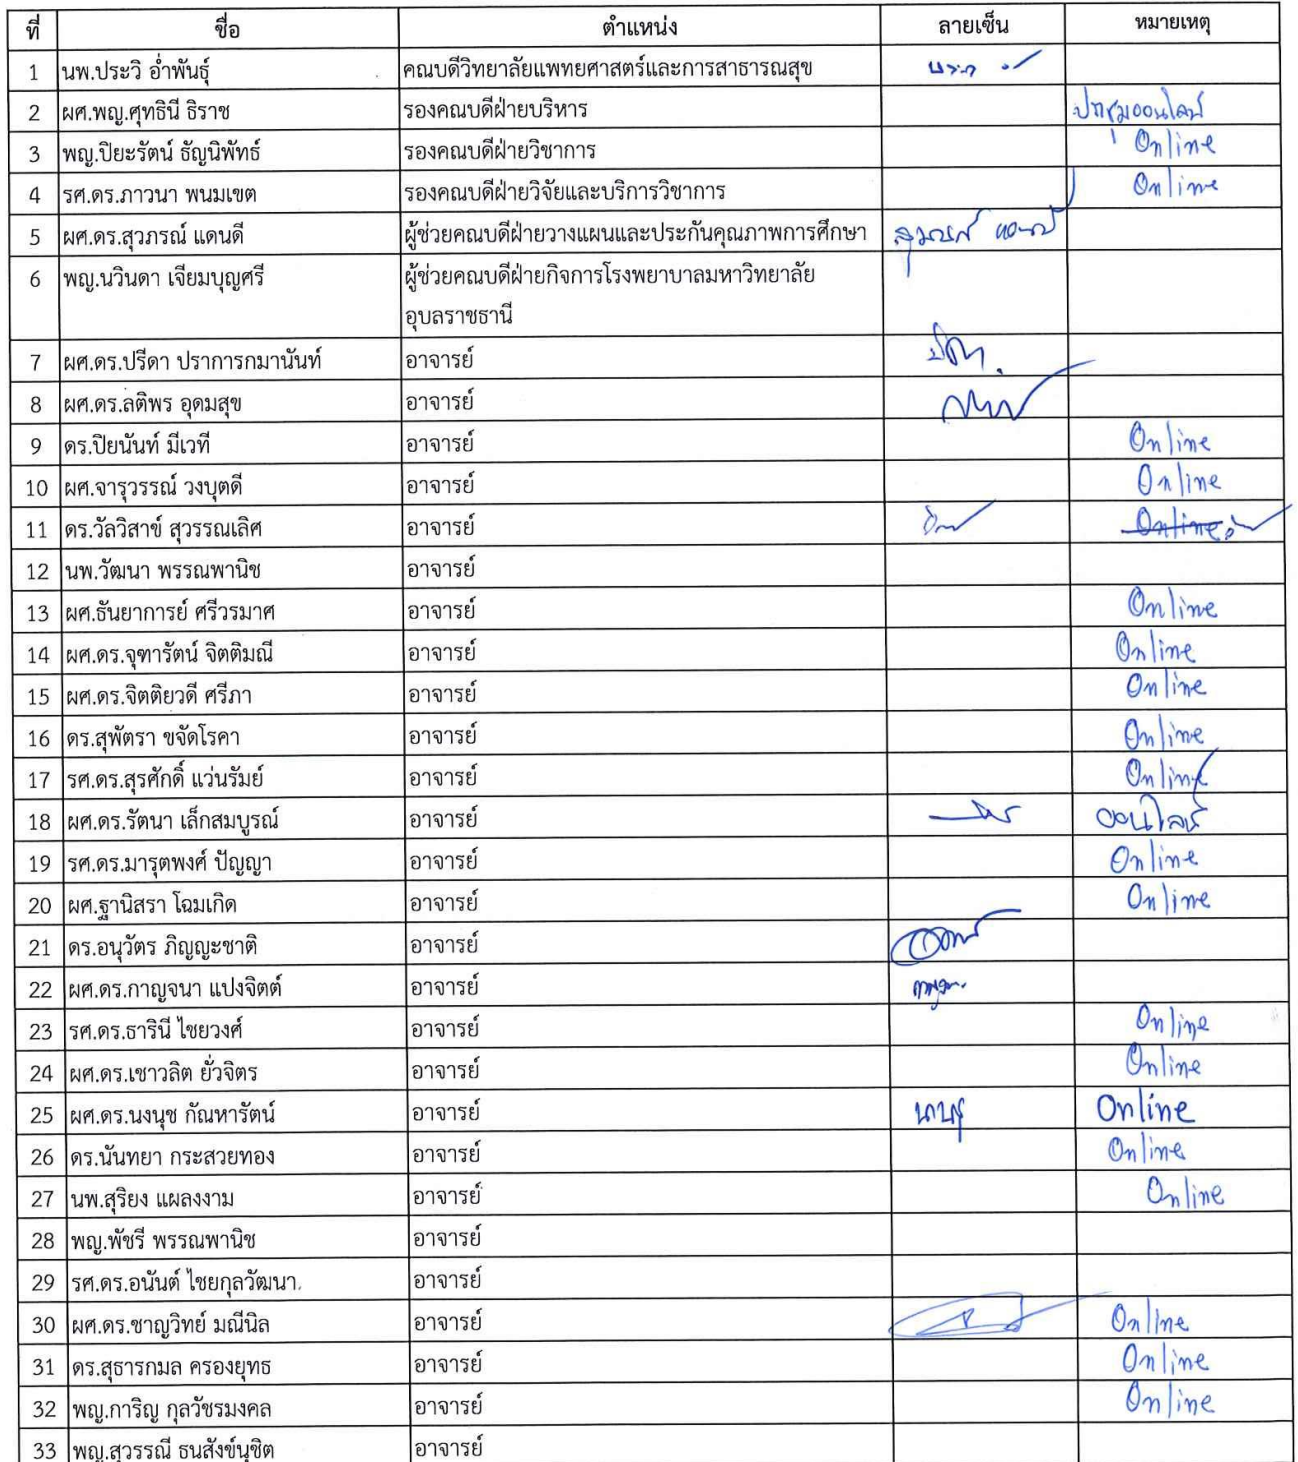 ที่ ชื่อ ตำแหน่ง ลายเซ็น หมายเหตุ
1 นพ.ประวิ อ่ำพันธุ์ คณบดีวิทยาลัยแพทยศาสตร์และการสาธารณสุข
2 ผศ.พญ.ศุทธินี ธิราช รองคณบดีฝ่ายบริหาร ประชุมออนไลน์
3 พญ.ปิยะรัตน์ ธัญนิพัทธ์ รองคณบดีฝ่ายวิชาการ Online
4 รศ.ดร.ภาวนา พนมเขต รองคณบดีฝ่ายวิจัยและบริการวิชาการ Online
5 ผศ.ดร.สุวภรณ์ แดนดี ผู้ช่วยคณบดีฝ่ายวางแผนและประกันคุณภาพการศึกษา
6 พญ.นวินดา เจียมบุญศรี ผู้ช่วยคณบดีฝ่ายกิจการโรงพยาบาลมหาวิทยาลัย
อุบลราชธานี
7 ผศ.ดร.ปรีดา ปราการกมานันท์ อาจารย์
8 ผศ.ดร.ลติพร อุดมสุข อาจารย์
9 ดร.ปิยนันท์ มีเวที อาจารย์ Online
10 ผศ.จารุวรรณ์ วงบุตดี อาจารย์ Online
11 ดร.วัลวิสาข์ สุวรรณเลิศ อาจารย์ Online
12 นพ.วัฒนา พรรณพานิช อาจารย์
13 ผศ.ธันยาการย์ ศรีวรมาศ อาจารย์ Online
14 ผศ.ดร.จุฑารัตน์ จิตติมณี อาจารย์ Online
15 ผศ.ดร.จิตติยวดี ศรีภา อาจารย์ Online
16 ดร.สุพัตรา ขจัดโรคา อาจารย์ Online
17 รศ.ดร.สุรศักดิ์ แว่นรัมย์ อาจารย์ Online
18 ผศ.ดร.รัตนา เล็กสมบูรณ์ อาจารย์ ออนไลน์
19 รศ.ดร.มารุตพงศ์ ปัญญา อาจารย์ Online
20 ผศ.ฐานิสรา โฉมเกิด อาจารย์ Online
21 ดร.อนุวัตร ภิญญะชาติ อาจารย์
22 ผศ.ดร.กาญจนา แปงจิตต์ อาจารย์
23 รศ.ดร.ธารินี ไชยวงศ์ อาจารย์ Online
24 ผศ.ดร.เชาวลิต ยั่วจิตร อาจารย์ Online
25 ผศ.ดร.นงนุช กัณหารัตน์ อาจารย์ Online
26 ดร.นันทยา กระสวยทอง อาจารย์ Online
27 นพ.สุริยง แผลงงาม อาจารย์ Online
28 พญ.พัชรี พรรณพานิช อาจารย์
29 รศ.ดร.อนันต์ ไชยกุลวัฒนา อาจารย์
30 ผศ.ดร.ชาญวิทย์ มณีนิล อาจารย์ Online
31 ดร.สุธารกมล ครองยุทธ อาจารย์ Online
32 พญ.การิญ กุลวัชรมงคล อาจารย์ Online
33 พญ.สุวรรณี ธนสังข์นุชิต อาจารย์